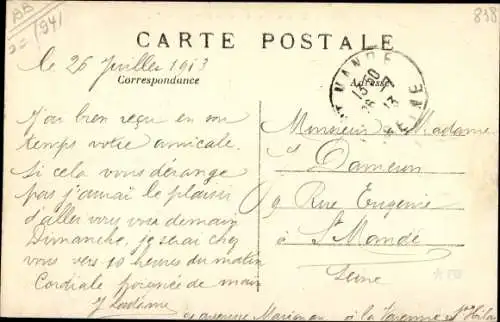 BB
(94)
838
CARTE POSTALE
Correspondance
Adresse
ST MANDE
SEINE
le 26 Juillet 1913
J'ai bien reçu en son
temps votre amicale.
Si cela vous dérange
pas j'aurai le plaisir
d'aller voir vous demain
Dimanche, je serai chez
vous vers 10 heures du matin
Cordiale poignée de main
Monsieur Madame
Dameron
9 Rue Eugenie
à St Mandé
Seine
avenue Marignan à la Varenne St Hila